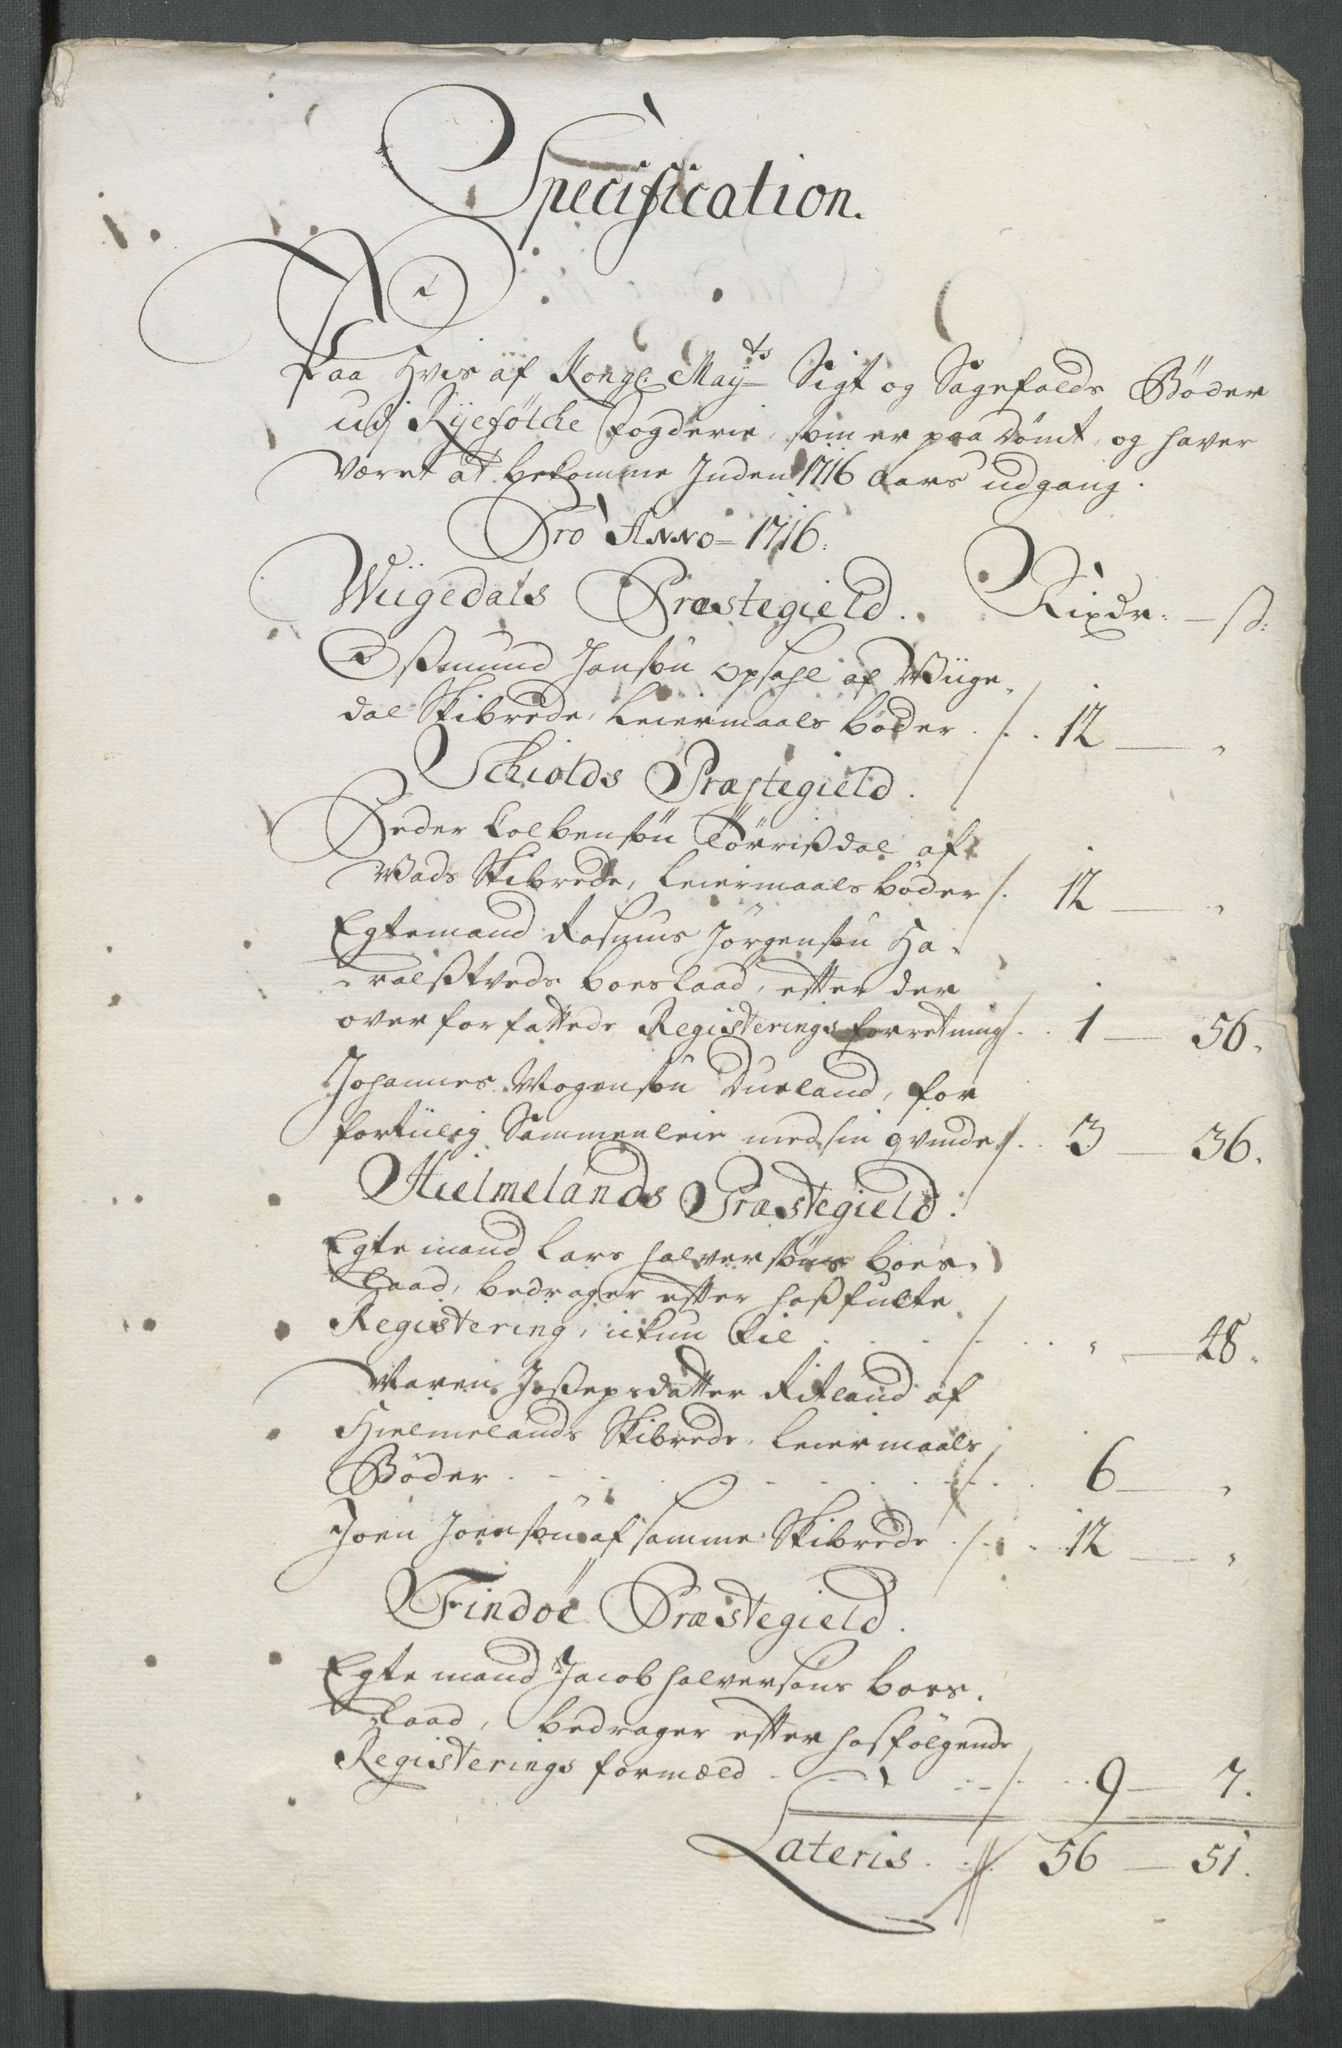 Specification.
Paa Hvis af Kongl: May:ts Sigt og Sagefalds Bøder
udj Ryefølche fogderie, som er paa dømt, og haver
været at bekomme Inden 1716 aars udgang.
Pro Anno 1716:
Wiigedals Præstegield. Rixdr: — ß:
Aßmund Jansøn Opsahl af Wiige-
dal Skibrede, Leiermaals bøder . / . . 12 — „
Schiolds Præstegield.
Peder Colbensøn Tørrißdal af
Wads Skibrede, Leiermaals bøder /. 12 — „
Egtemand Rasmus Jørgensøn Ha-
ralßtveds boeslaad, efter der
over forfattede Registerings forretning /. . 1 — 56.
Johannes Mogensøn Dueland, for
fortiilig Sammenleie med sin qvinde /. . 3 — 36.
Hielmelands Præstegield:
Egte mand Lars Halversøns boes-
laad, bedrager efter hoßfulte
Registering, ikun til . . . . / . . „ — 48.
Maren Joßepsdatter Ritland af
Hielmelands Skibrede, Leiermaals
Bøder . . . . . . . . / . . 6 — „
Joen Joensøn af samme Skibrede . / . . 12 — „
Findøe Præstegield.
Egte mand Jacob Halversøns boes-
laad, bedrager efter hosfølgende
Registerings formæld . . . . / . . . 9 — 7.
Lateris . . // 56 — 51.